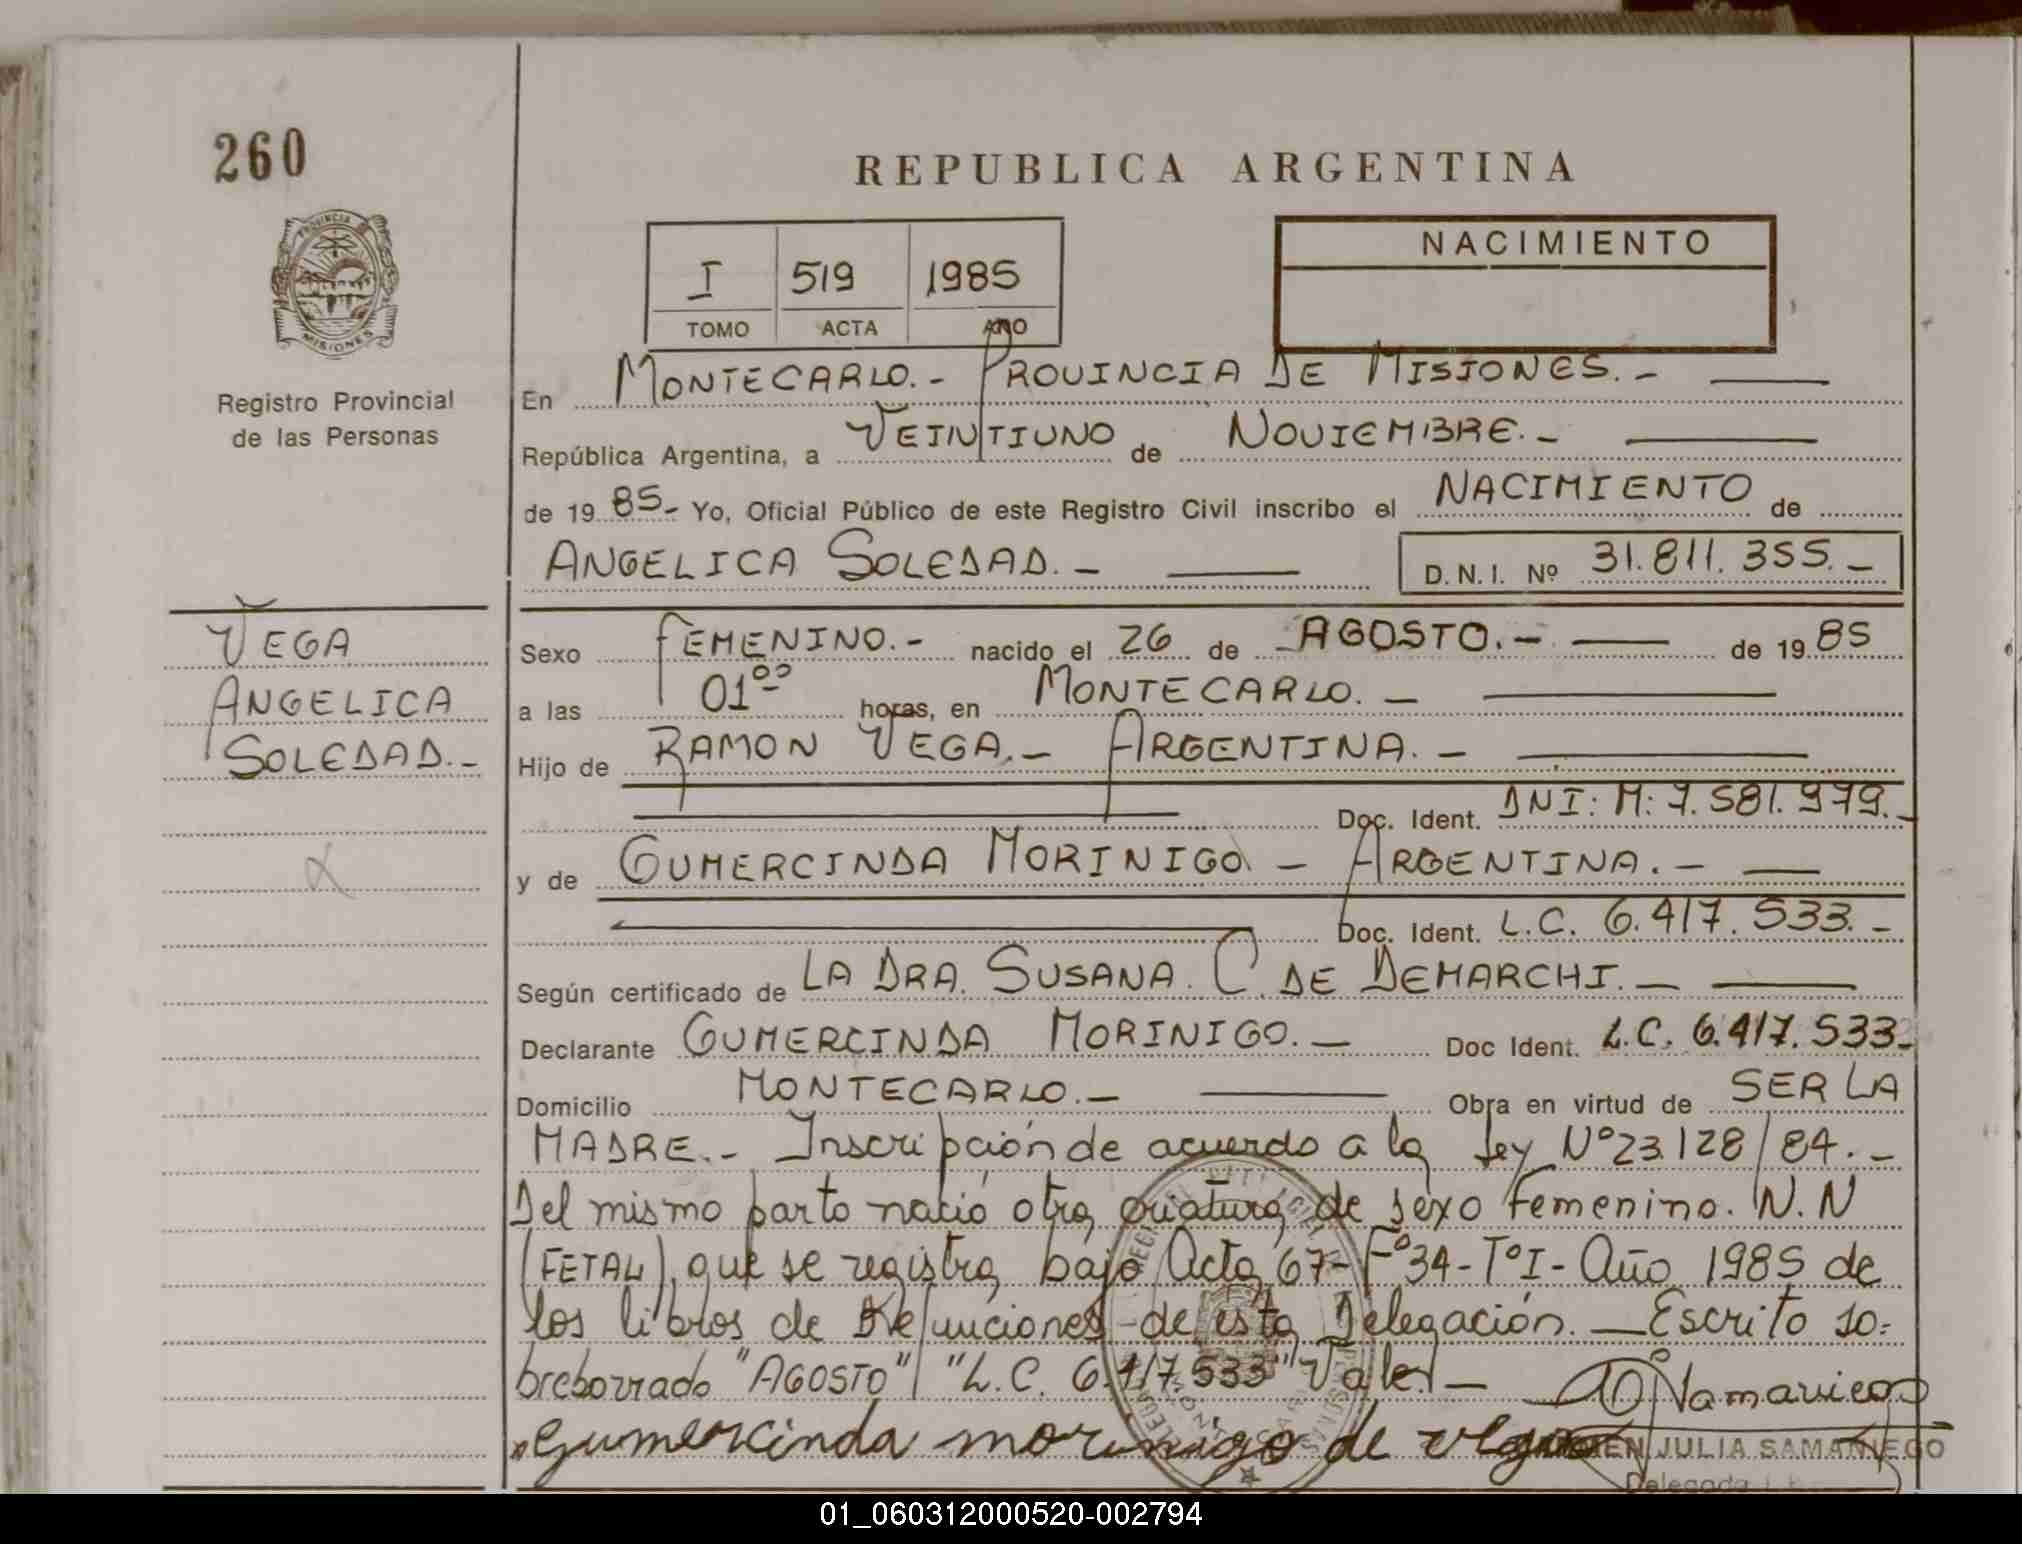 260
PROVINCIA
MISIONES
Registro Provincial
de las Personas
VEGA
ANGELICA
SOLEDAD.-
REPUBLICA ARGENTINA
I 519 1985
TOMO ACTA AÑO
NACIMIENTO
En MONTECARLO.- PROVINCIA DE MISIONES.-
República Argentina, a VEINTIUNO de NOVIEMBRE.-
de 1985.- Yo, Oficial Público de este Registro Civil inscribo el NACIMIENTO de
ANGELICA SOLEDAD.- D.N.I. Nº 31.811.355.-
Sexo FEMENINO.- nacido el 26 de AGOSTO.- de 1985
a las 01⁰⁰ horas, en MONTECARLO.-
Hijo de RAMON VEGA.- ARGENTINA.-
Doc. Ident. DNI: M: 7.581.979.-
y de GUMERCINDA MORINIGO - ARGENTINA.-
Doc. Ident. L.C. 6.417.533.-
Según certificado de LA DRA. SUSANA. C. DE DEMARCHI.-
Declarante GUMERCINDA MORINIGO.- Doc Ident. L.C. 6.417.533-
Domicilio MONTECARLO.- Obra en virtud de SER LA
MADRE.- Inscripción de acuerdo a la ley Nº 23.128/84.-
Del mismo parto nació otra criatura de sexo femenino. N.N
(FETAL), que se registra bajo Acta 67-Fº34-TºI-Año 1985 de
los libros de Defunciones de esta Delegación.—Escrito so=
breborrado "AGOSTO" "L.C. 6.417.533" Vale.-
Gumercinda morinigo de vega
JULIA SAMANIEGO
Delegada
01_060312000520-002794